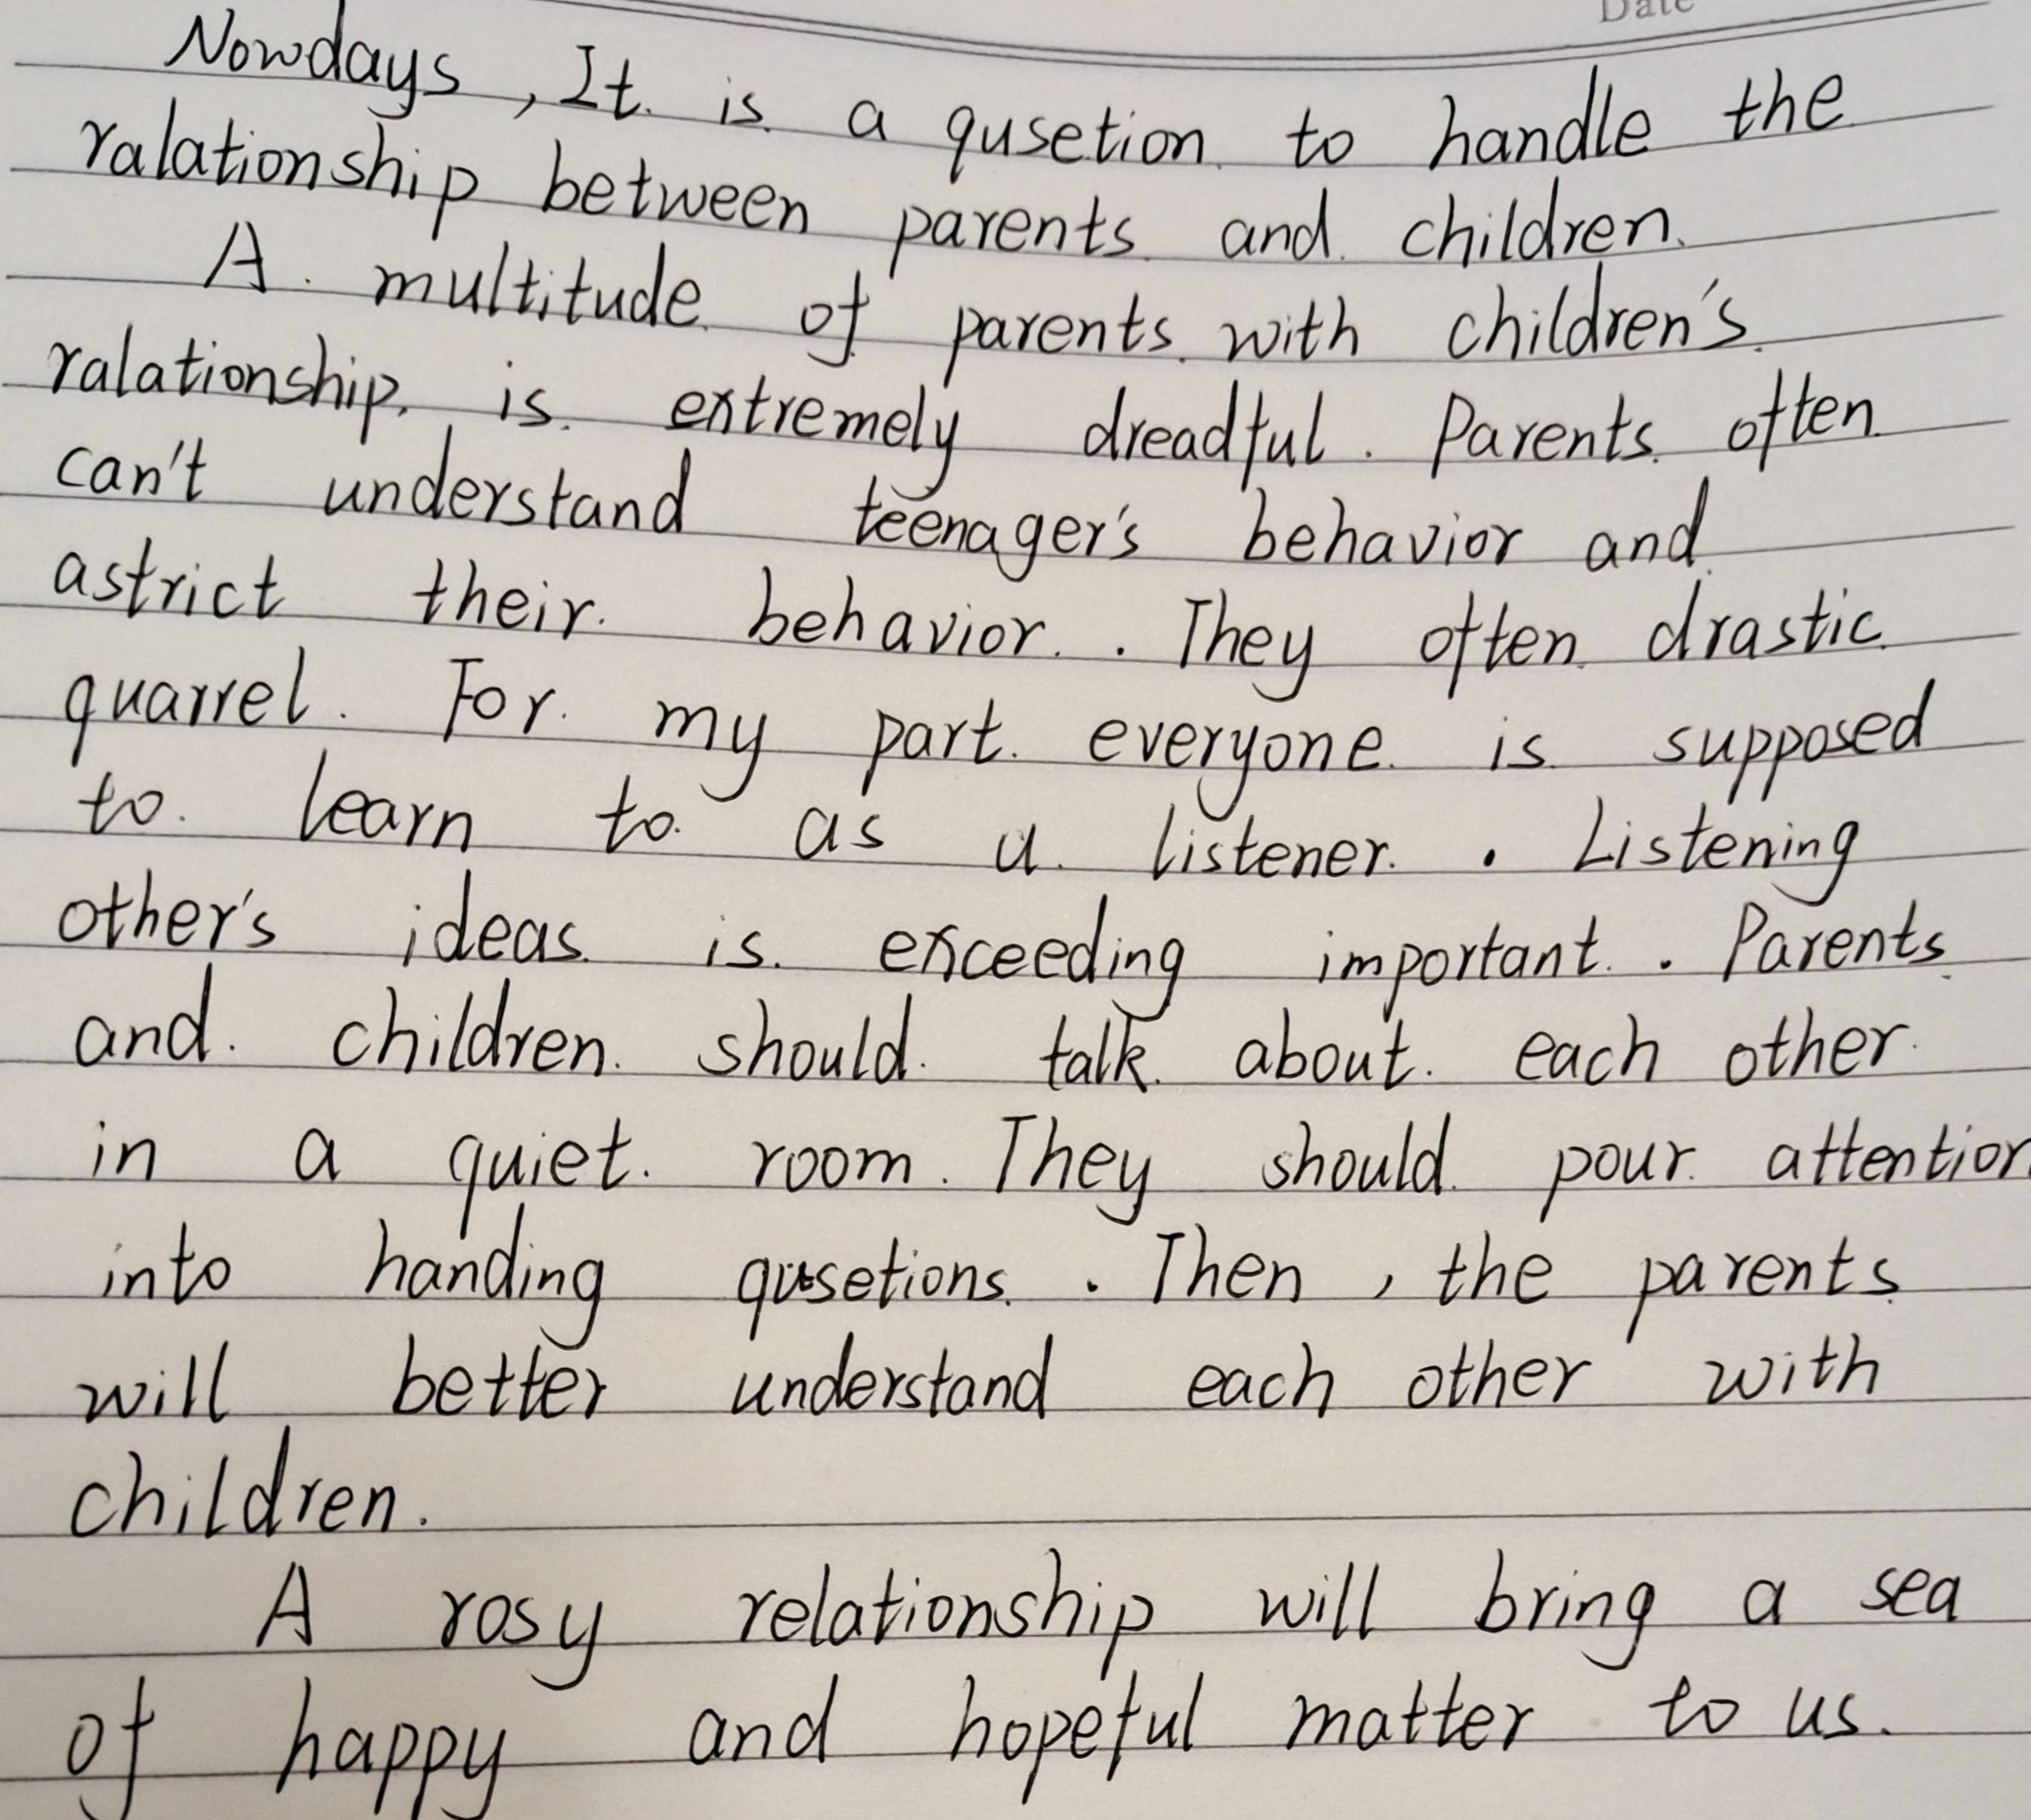 Date
Nowdays, It is a qusetion to handle the
ralationship between parents and children.
A multitude of parents with children's
ralationship is extremely dreadful. Parents often
can't understand teenager's behavior and
astrict their behavior. They often drastic
quarrel. For my part everyone is supposed
to learn to as a listener. Listening
other's ideas is exceeding important. Parents
and children should talk about each other
in a quiet room. They should pour attention
into handing qusetions. Then, the parents
will better understand each other with
children.
A rosy relationship will bring a sea
of happy and hopeful matter to us.